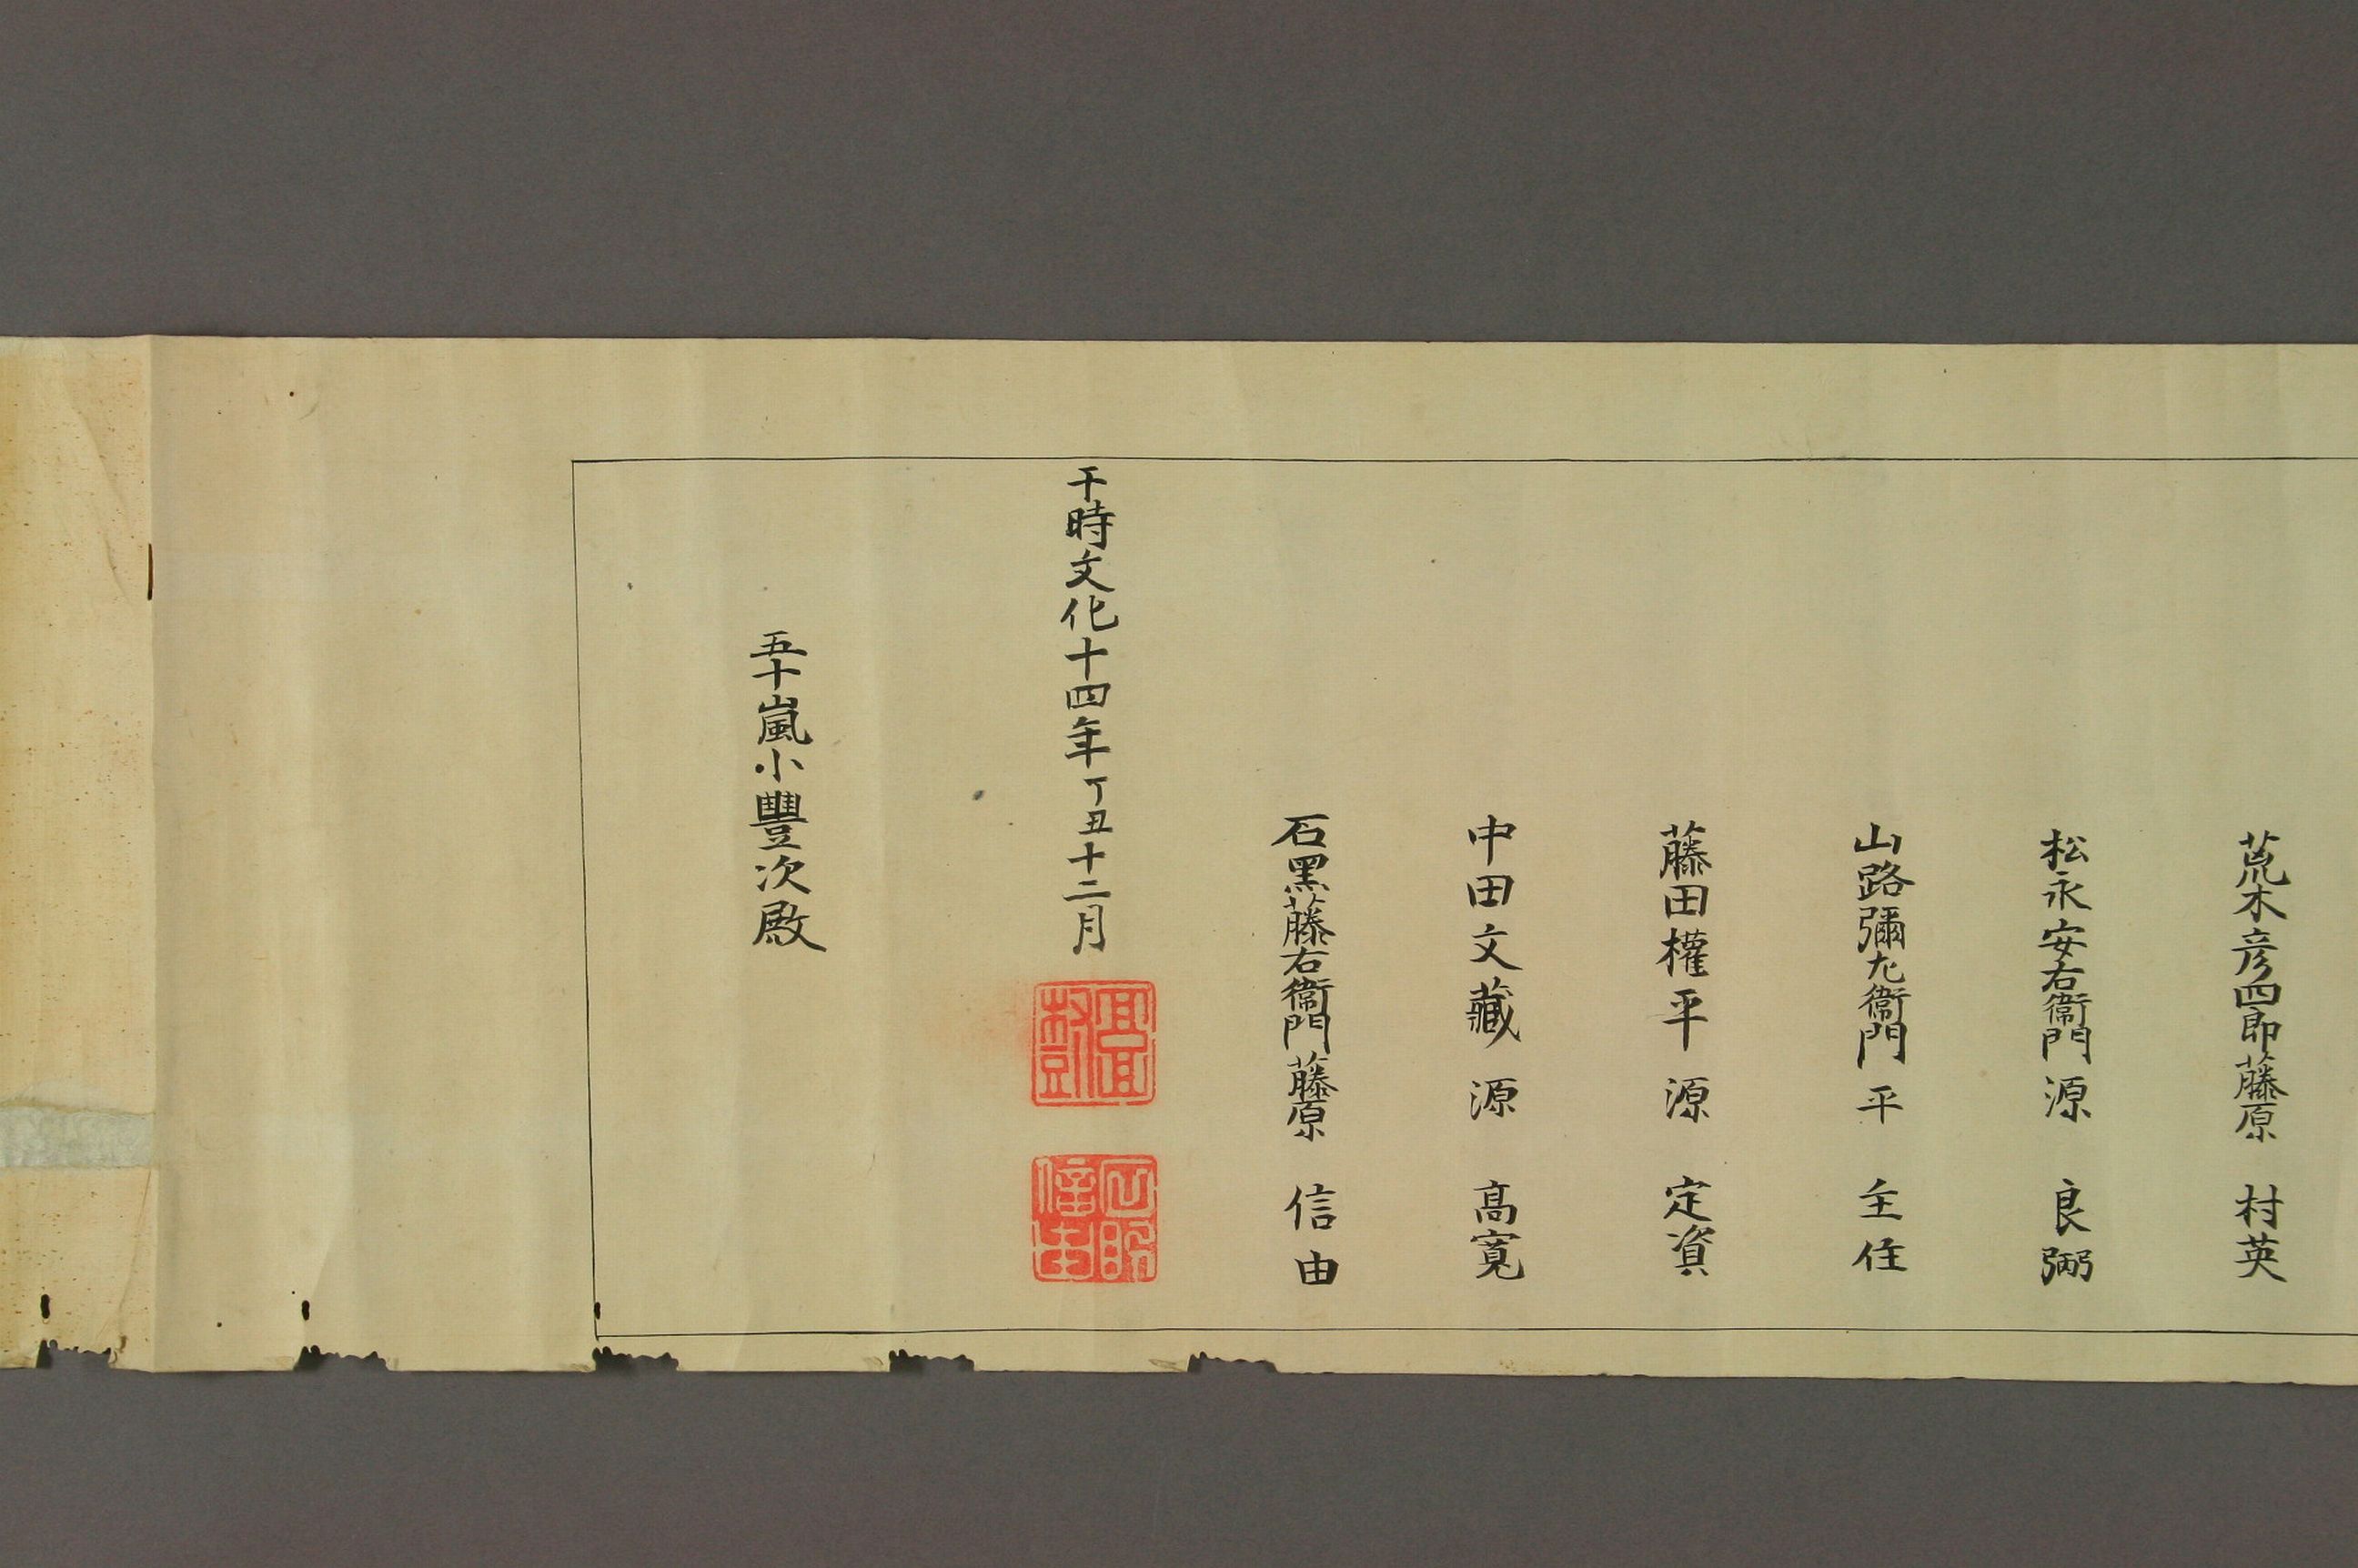 荒木彦四郎藤原　村英
松永安右衞門　源　良弼
山路彌左衞門　平　主住
藤田權平　源　定資
中田文藏　源　髙寬
石黑藤右衞門藤原　信由
干時文化十四年丁丑十二月
五十嵐小豐次殿